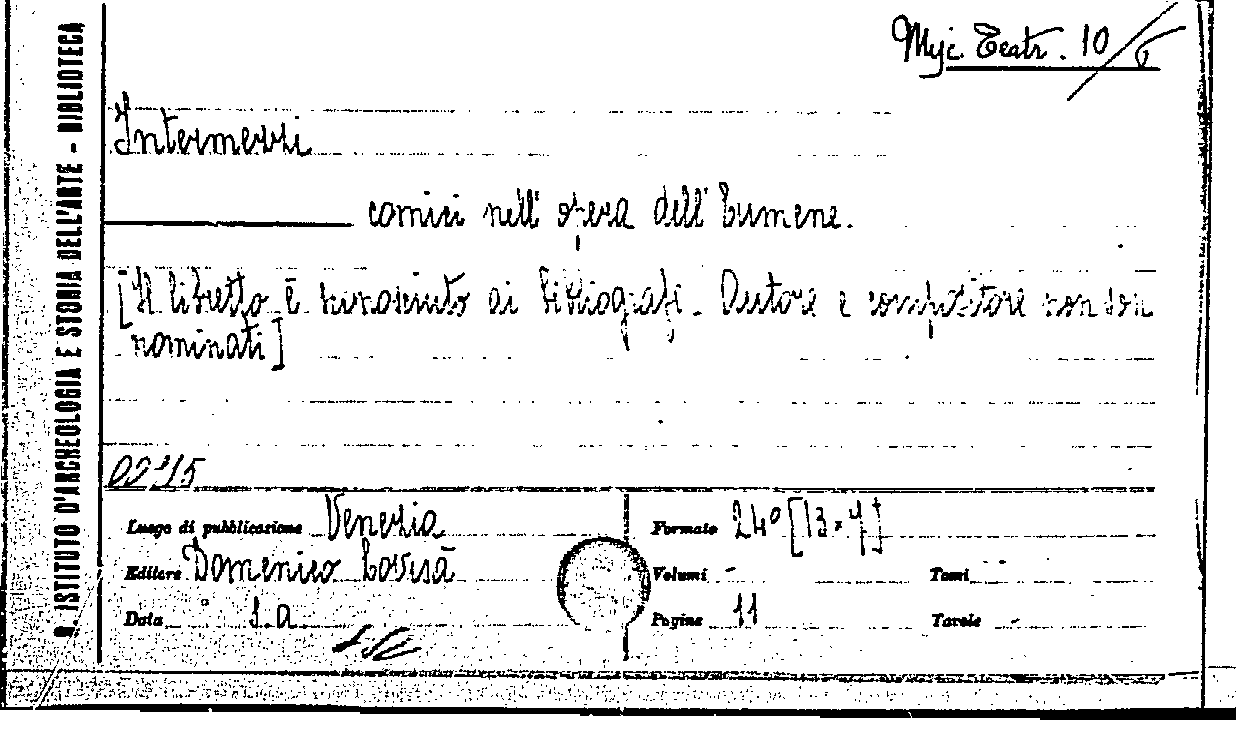 R. ISTITUTO D'ARCHEOLOGIA E STORIA DELL'ARTE - BIBLIOTECA
Teatr. 10/
Intermezzi
comici nell' opera dell' Eumene.
[Il libretto è ai bibliografi. Autore e compositore non son
nominati]
Luogo di pubblicazione Venezia
Editore Domenico Lovisà
Data s.a
Formato 24° [13 × 7]
Volumi -
Tomi
Pagine 11
Tavole -